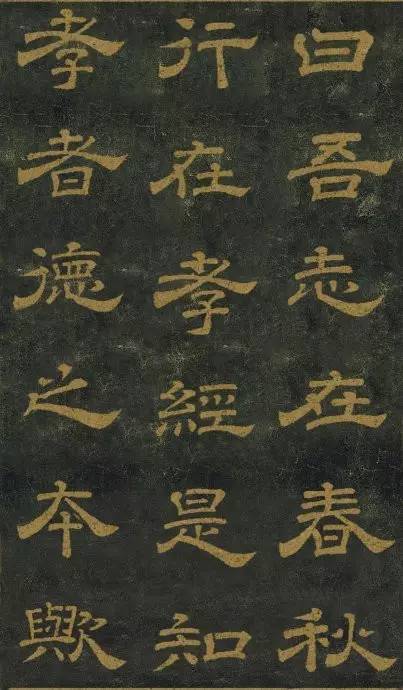 曰吾志在春秋
行在孝經是知
孝者德之本歟